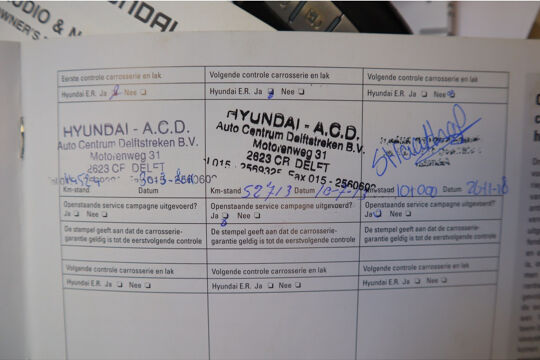 Eerste controle carrosserie en lak
Hyundai E.R. Ja ❑ Nee ❑
HYUNDAI - A.C.D.
Auto Centrum Delftstreken B.V.
Motorenweg 31
2623 CF DELFT
Km-stand Datum
Openstaande service campagne uitgevoerd?
Ja ❑ Nee ❑
De stempel geeft aan dat de carrosserie-
garantie geldig is tot de eerstvolgende controle
Volgende controle carrosserie en lak
Hyundai E.R. Ja ❑ Nee ❑
HYUNDAI - A.C.D.
Auto Centrum Delftstreken B.V.
Motorenweg 31
2623 CR DELFT
Fax 015 - 2560609
Km-stand 52713 Datum
Openstaande service campagne uitgevoerd?
Ja ❑ Nee ❑
De stempel geeft aan dat de carrosserie-
garantie geldig is tot de eerstvolgende controle
Volgende controle carrosserie en lak
Hyundai E.R. Ja ❑ Nee
Km-stand 101000 Datum
Openstaande service campagne uitgevoerd?
Ja ❑ Nee ❑
De stempel geeft aan dat de carrosserie-
garantie geldig is tot de eerstvolgende controle
Volgende controle carrosserie en lak
Hyundai E.R. Ja ❑ Nee ❑
Volgende controle carrosserie en lak
Hyundai E.R. Ja ❑ Nee ❑
Volgende controle carrosserie en lak
Hyundai E.R. Ja ❑ Nee ❑